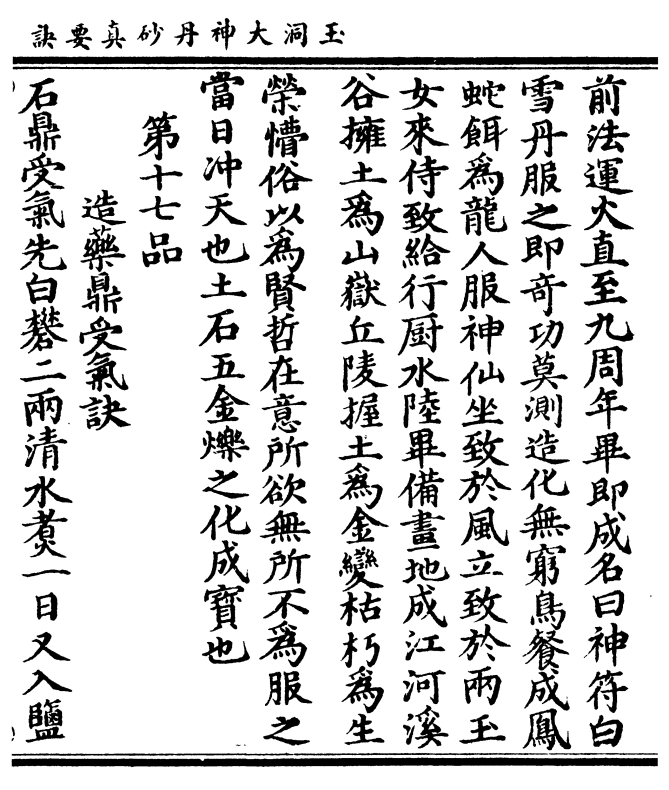 玉洞大神丹砂真要訣
前法運火直至九周年畢即成名曰神符白
雪丹服之即竒功莫測造化無窮鳥餐成鳳
蛇餌為龍人服神仙坐致於風立致於雨玉
女來侍致給行厨水陸畢備畫地成江河溪
谷擁土為山嶽丘陵握土為金變枯朽為生
榮懵俗以為賢哲在意所欲無所不為服之
當日冲天也土石五金爍之化成寳也
第十七品
造藥鼎受氣訣
石鼎受氣先白礬二兩清水煑一日又入鹽